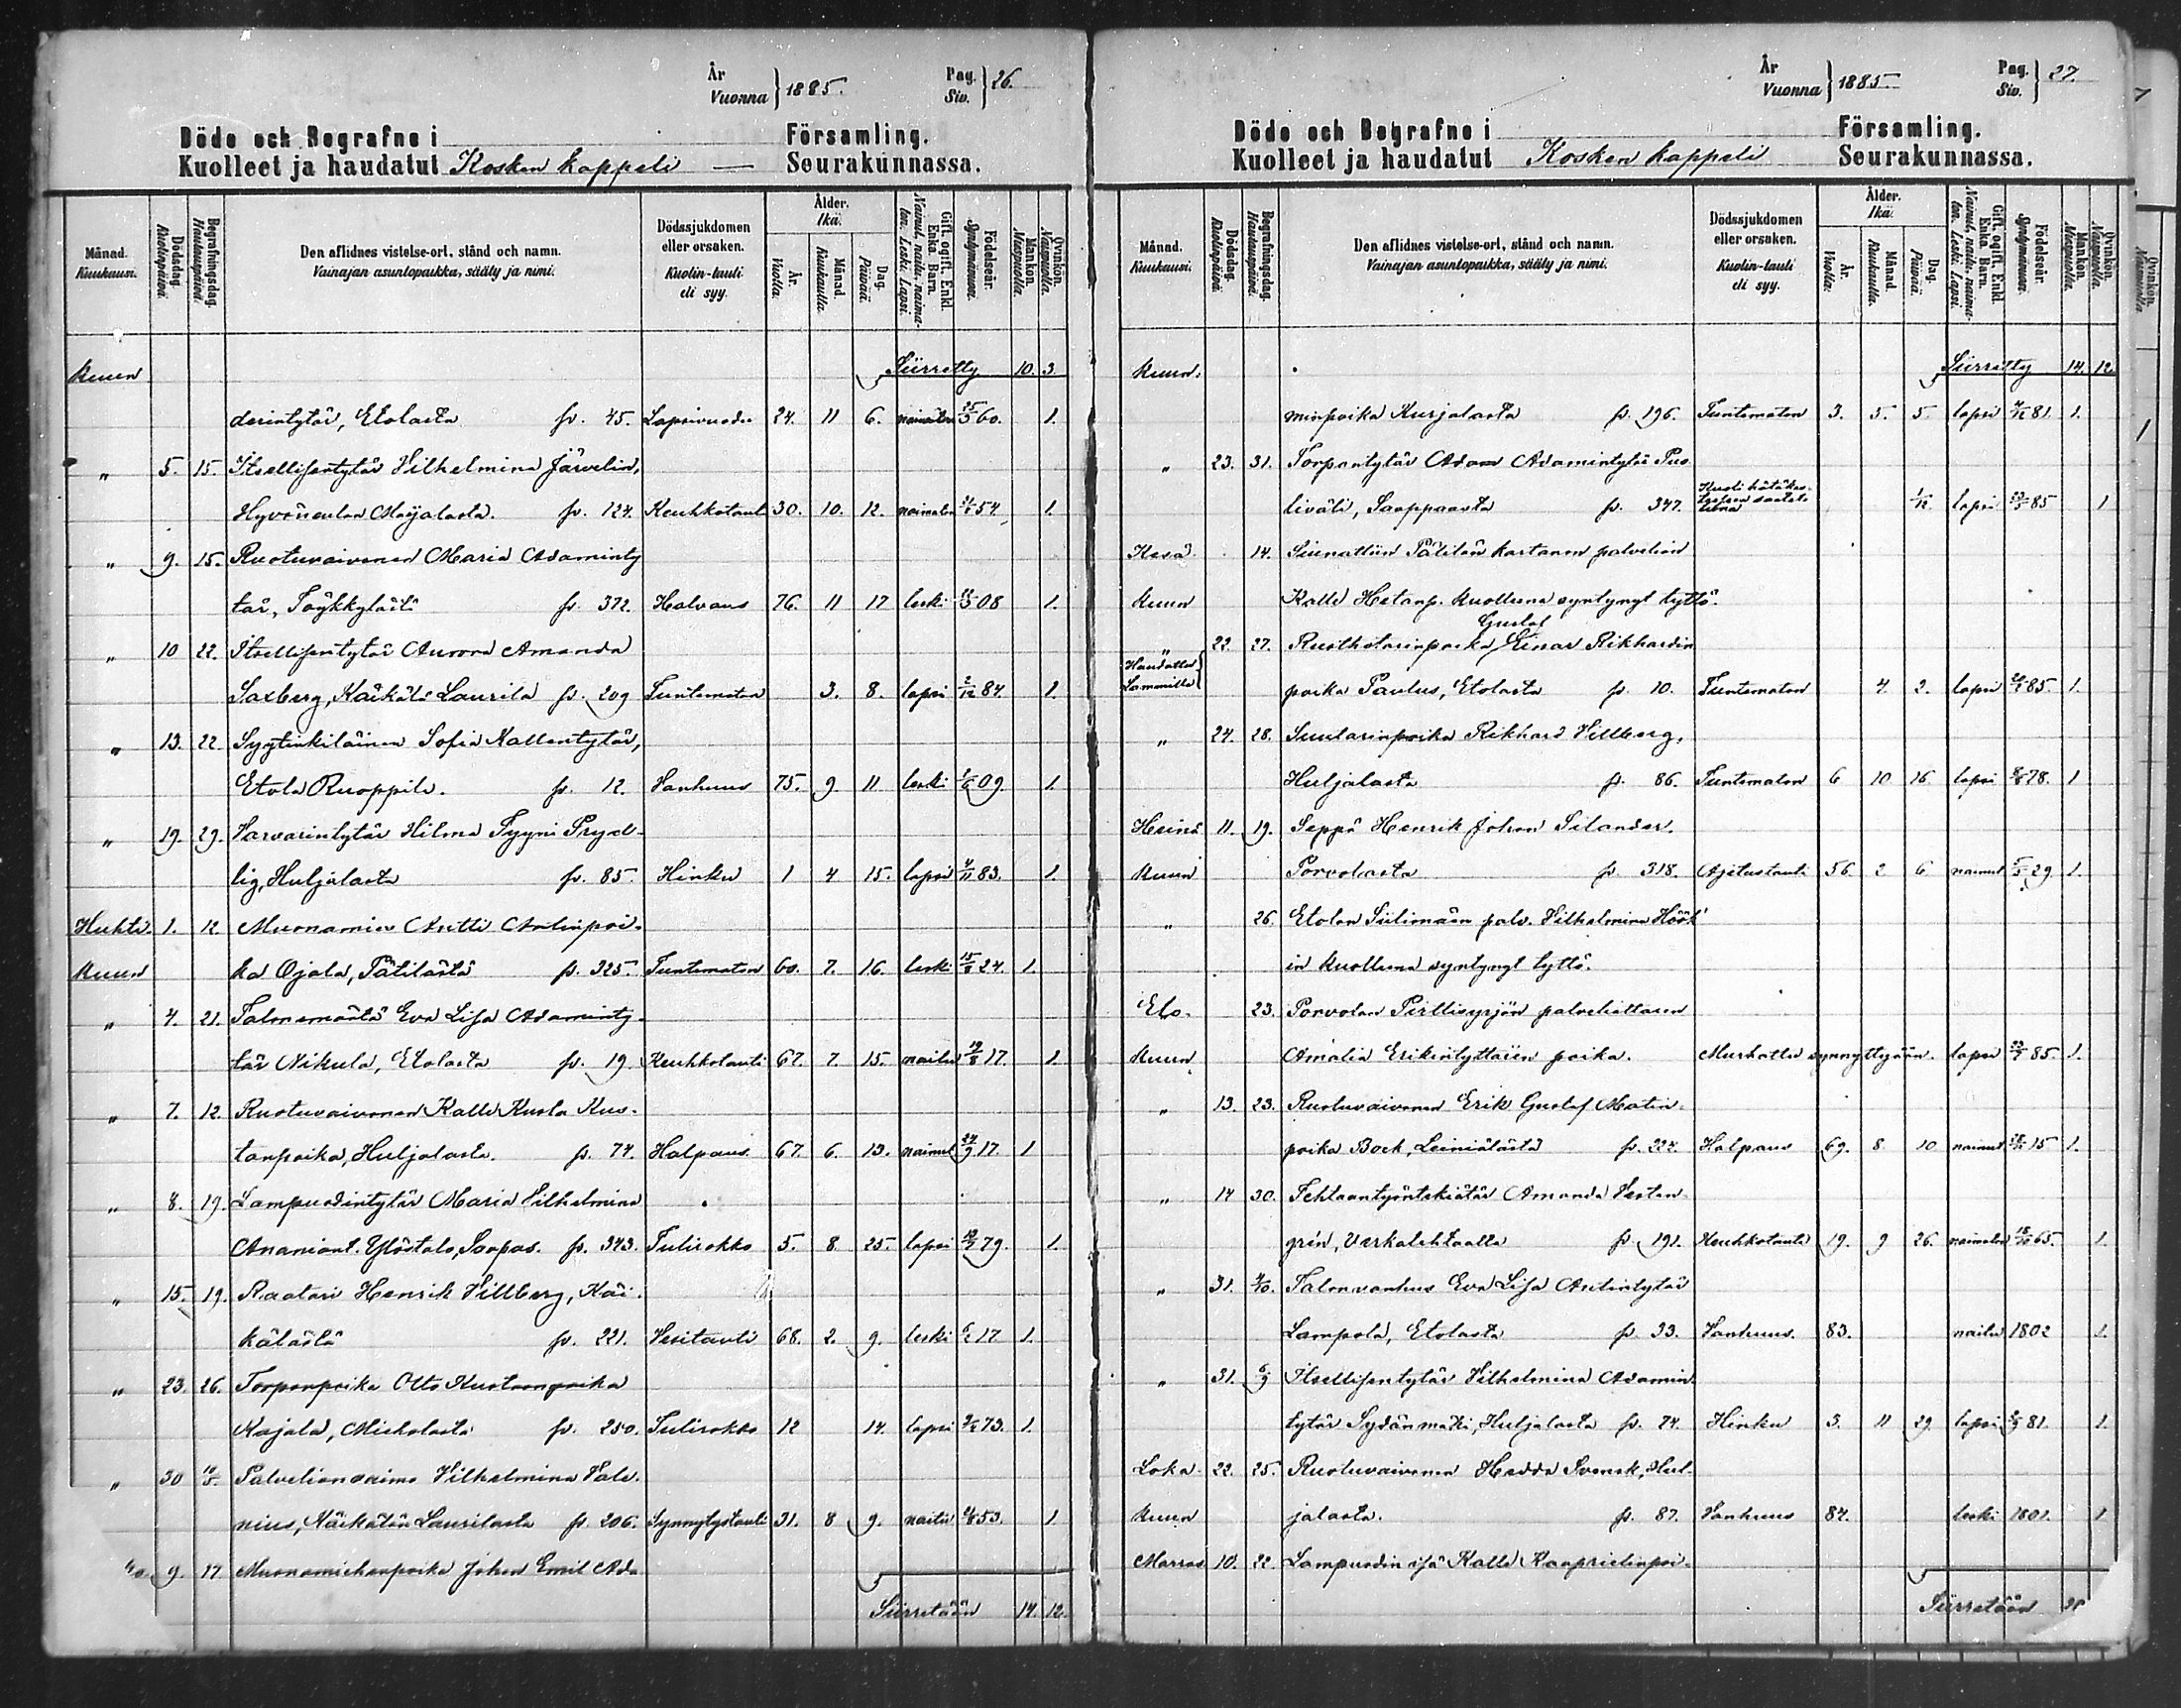 År
Vuonna } 1885.
Pag.
Siv. } 26.
Döde och Begrafne i Församling.
Kuolleet ja haudatut Kosken kappeli — Seurakunnassa.
Månad. Kuukausi.
Dödsdag. Kuolinpäivä.
Begrafningsdag. Hautauspäivä.
Den aflidnes vistelse-ort, stånd och namn.
Vainajan asuntopaikka, sääty ja nimi.
Dödssjukdomen eller orsaken.
Kuolin-tauti eli syy.
Ålder. Ikä.
År. Vuotta.
Månad. Kuukautta.
Dag. Päivää.
Gift, ogift. Enkl. Enka. Barn.
Nainut, naitu, naimaton. Leski. Lapsi.
Födelseår. Syntymävuosi.
Mankön. Miespuolia.
Qvinkön. Naispuolia.
Kuun Siirretty 10. 3.
derintytär, Etolasta p. 45. Lapsivuode 24. 11 6. naimaton 25/3 60. 1.
" 5. 15. Itsellisentytär Vilhelmina Järvelin,
Hyvöneulan Mäjälästä. p. 124. Keuhkotaut 30. 10. 12. naimaton 54. 1.
" 9. 15. Ruotuvaivanen Maria Adaminty
tär, Töykkylästä p. 372. Halvaus 76. 11 17 leski 08 1.
" 10 22. Itsellisentytär Aurora Amanda
Saxberg, Käikälä Laurila p. 209 Tuntematon 3. 8. lapsi 2/12 84. 1.
" 13. 22. Syytinkiläinen Sofia Kallentytär,
Etola Ruoppila. p. 12. Vanhuus 75. 9 11 leski 2/6 09. 1.
" 19. 29. Varvarintytär Hilma Tyyni Pryd-
lig, Huljalasta p. 85. Hinku 1 4 15. lapsi 4/11 83. 1.
Huhti- 1. 12 Muonamies Antti Antinpoi-
Kuun ka Ojala, Pätilästä p. 325. Tuntematon 60. 7. 16. leski 15/8 24. 1.
" 4. 21. Talonemäntä Eva Lisa Adaminty-
tär Nikula, Etolasta p. 19 Keuhkotauti 67. 7. 15. naitu 19/8 17. 1.
" 7. 12. Ruotuvaivanen Kalle Kusta Kus-
tanpoika, Huljalasta. p. 74. Halpaus 67. 6. 13. nainut 24/9 17. 1
" 8. 19. Lampuodintytär Maria Vilhelmina
Ananiant. Ylöstalo, Sorpas. p. 343. Tulirokko 5. 8. 25. lapsi 79. 1.
" 15. 19. Raatari Henrik Villberg, Käi-
kälästä p. 221. Vesitauti 68. 2. 9. leski 6/2 17 1.
" 23. 26. Torparpoika Otto Kustaanpoika
Rajala, Mickolasta p. 250. Tulirokko 12 14. lapsi 73. 1.
" 30 10/5 Palvelianvaimo Vilhelmina Vale-
nius, Käikälän Laurilasta p. 206. Synnytystauti 31. 8 9. naitu 53. 1.
9. 17. Muonamiehenpoika Johan Emil Ada-
Siirretään 14. 12.
År
Vuonna } 1885
Pag.
Siv. } 27.
Döde och Begrafne i Församling.
Kuolleet ja haudatut Kosken kappeli Seurakunnassa.
Månad. Kuukausi.
Dödsdag. Kuolinpäivä.
Begrafningsdag. Hautauspäivä.
Den aflidnes vistelse-ort, stånd och namn.
Vainajan asuntopaikka, sääty ja nimi.
Dödssjukdomen eller orsaken.
Kuolin-tauti eli syy.
Ålder. Ikä.
År. Vuotta.
Månad. Kuukautta.
Dag. Päivää.
Gift, ogift. Enkl. Enka. Barn.
Nainut, naitu, naimaton. Leski. Lapsi.
Födelseår. Syntymävuosi.
Mankön. Miespuolia.
Qvinkön. Naispuolia.
Kuun. Siirretty 14. 12.
minpoika Kurjalasta p. 196. Tuntematon 3. 5. 5. lapsi 4/12 81. 1.
" 23. 31. Torparintytär Adam Adamintytär Puo-
liväli, Sorppaasta p. 347. lapsi 85 1
Kesä- 14. Siunattiin Pätilän kartanon palvelian
Kuun Kalle Hetanp. kuolluna syntynyt tyttö.
Gustaf
" 22. 27. Rusthollarinpoika Einar Rikhardin
Haudattu Lammille poika Paulus, Etolasta p. 10. Tuntematon 4. 2. lapsi 20/1 85. 1.
" 24. 28. Suutarinpoika Rikhard Villberg,
Huljalasta p. 86. Tuntematon 6 10 16. lapsi 78. 1
Heinä- 11. 19. Seppä Henrik Johan Silander.
Kuun Porvolasta p. 318. Ajetustauti 56. 2 6 nainut 5/5 29. 1.
" 26. Etolan Siilimäen palv. Vilhelmina Höök'
in kuolluna syntynyt tyttö.
Elo- 23. Porvolan Pirttisyrjän palveliattaren
Kuun Amalia Erikintyttären poika. Murhattu synnyttyään. lapsi 85. 1.
" 13. 23. Ruotuvaivanen Erik Gustaf Matin-
poika Bock, Leiniälästä p. 224. Halpaus 69. 8 10 nainut 15 1.
" 14 30. Tehtaantyöntekiätär Amanda Vesten-
grén, Verkatehtaalta p. 191. Keuhkotauti 19. 9 26. naimaton 18/10 65. 1.
" 31. 4/10. Talonvanhus Eva Lisa Antintytär
Lampola, Etolasta p. 33. Vanhuus. 83. naitu 1802 1.
" 31. 6/9 Itsellisentytär Vilhelmina Adamin-
tytär Sydänmäki, Huljalasta p. 74. Hinku 3. 11 29. lapsi 81. 1.
Loka- 22. 25. Ruotuvaivanen Hedda Svensk, Hul-
Kuun jalasta. p. 87. Vanhuus 84. leski 1801. 1
Marras 10. 22. Lampuodin isä Kalle Kaaprielinpoi-
Siirretään